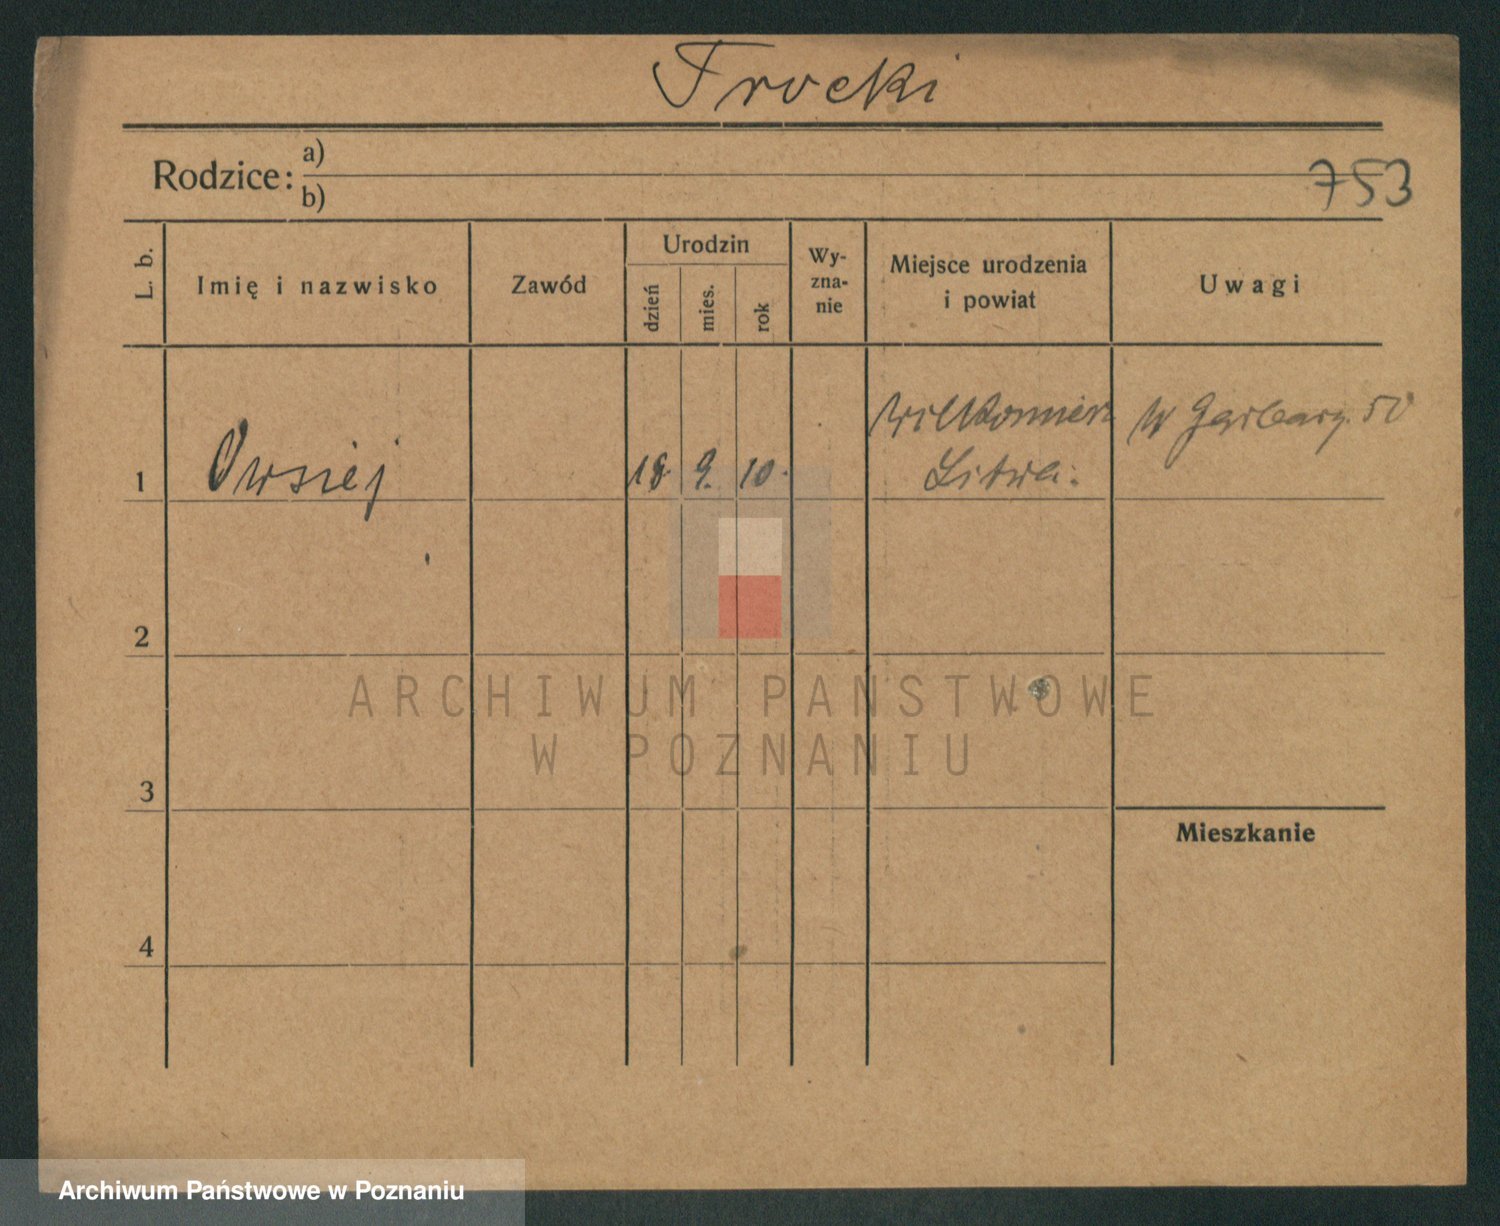 Trocki
Rodzice: a)
b)
753
L. b.
Imię i nazwisko
Zawód
Urodzin
dzień
mies.
rok
Wy-
zna-
nie
Miejsce urodzenia
i powiat
Uwagi
1
Owsiej
18. 9. 10.
Wilkomierz
Litwa.
W Garbary. 50
2
3
4
Mieszkanie
ARCHIWUM PAŃSTWOWE
W POZNANIU
Archiwum Państwowe w Poznaniu